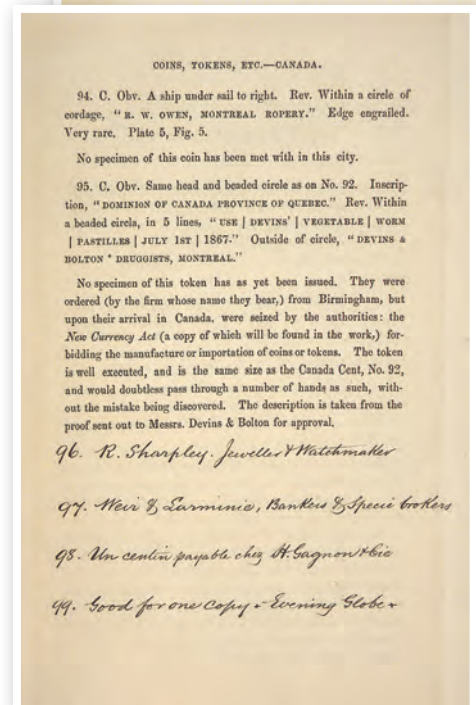 COINS, TOKENS, ETC.—CANADA.
94. C. Obv. A ship under sail to right. Rev. Within a circle of
cordage, “R. W. OWEN, MONTREAL ROPERY.” Edge engrailed.
Very rare. Plate 5, Fig. 5.
No specimen of this coin has been met with in this city.
95. C. Obv. Same head and beaded circle as on No. 92. Inscrip-
tion, “DOMINION OF CANADA PROVINCE OF QUEBEC.” Rev. Within
a beaded circle, in 5 lines, “USE | DEVINS’ | VEGETABLE | WORM
| PASTILLES | JULY 1ST | 1867.” Outside of circle, “DEVINS &
BOLTON * DRUGGISTS, MONTREAL.”
No specimen of this token has as yet been issued. They were
ordered (by the firm whose name they bear,) from Birmingham, but
upon their arrival in Canada, were seized by the authorities: the
New Currency Act (a copy of which will be found in the work,) for-
bidding the manufacture or importation of coins or tokens. The token
is well executed, and is the same size as the Canada Cent, No. 92,
and would doubtless pass through a number of hands as such, with-
out the mistake being discovered. The description is taken from the
proof sent out to Messrs. Devins & Bolton for approval.
96. R. Sharpley. Jeweller & Watchmaker
97. Weir & Larminie, Bankers & Specie brokers
98. Un centin payable chez H. Gagnon & Cie
99. Good for one copy - Evening Globe -